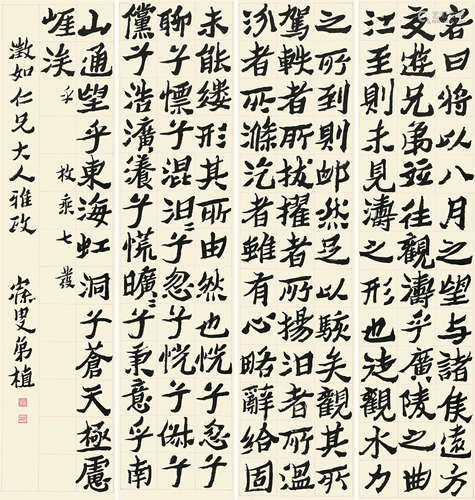 客曰將以八月之望與諸侯遠方
交遊兄弟並往觀濤乎廣陵之曲
江至則未見濤之形也徒觀水力
之所到則卹然足以駭矣觀其所
駕軼者所拔擢者所揚汩者所溫
汾者所滌汔者雖有心略辭給固
未能縷形其所由然也怳兮忽兮
聊兮慄兮混汩〻兮忽兮怳兮俶兮
儻兮浩瀇瀁兮慌曠〻兮秉意乎南
山通望乎東海虹洞兮蒼天極慮
崕涘 乎 枚乘七發
澂如仁兄大人雅政 寐叟弟植